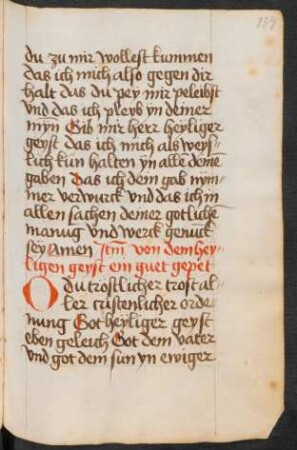 139
du zu mir wollest kummen
das ich mich also gegen dir
halt das du pey mir peleibst
vnd das ich pleyb yn deiner
myn Gib mir herr heyliger
geyst das ich mich als weys-
lich kun halten yn alle deine
gaben Das ich dem gab nym-
mer verwurck vnd das ich in
allen sachen deiner gotliche
manug vnd werck genuck
sey Amen Itm von dem hey-
ligen geyst ein guet gepet
O du trostlicher trost al-
ler cristenlicher orde
nung Got heyliger geyst
eben geleich Got dem vater
vnd got dem sun yn ewiger